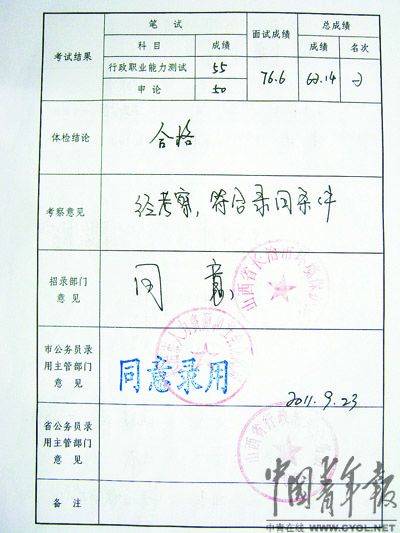 考试结果
笔 试
面试成绩
总成绩
科 目
成绩
成绩
名次
行政职业能力测试
55
76.6
63.14
2
申 论
50
体检结论
合格
考察意见
经考察，符合录用条件
招录部门
意 见
同意
山西省长治市
市公务员录
用主管部门
意 见
同意录用
2011.9.23
省公务员录
用主管部门
意 见
山西省行政
备 注
中国青年报
中青在线 WWW.CYOL.NET